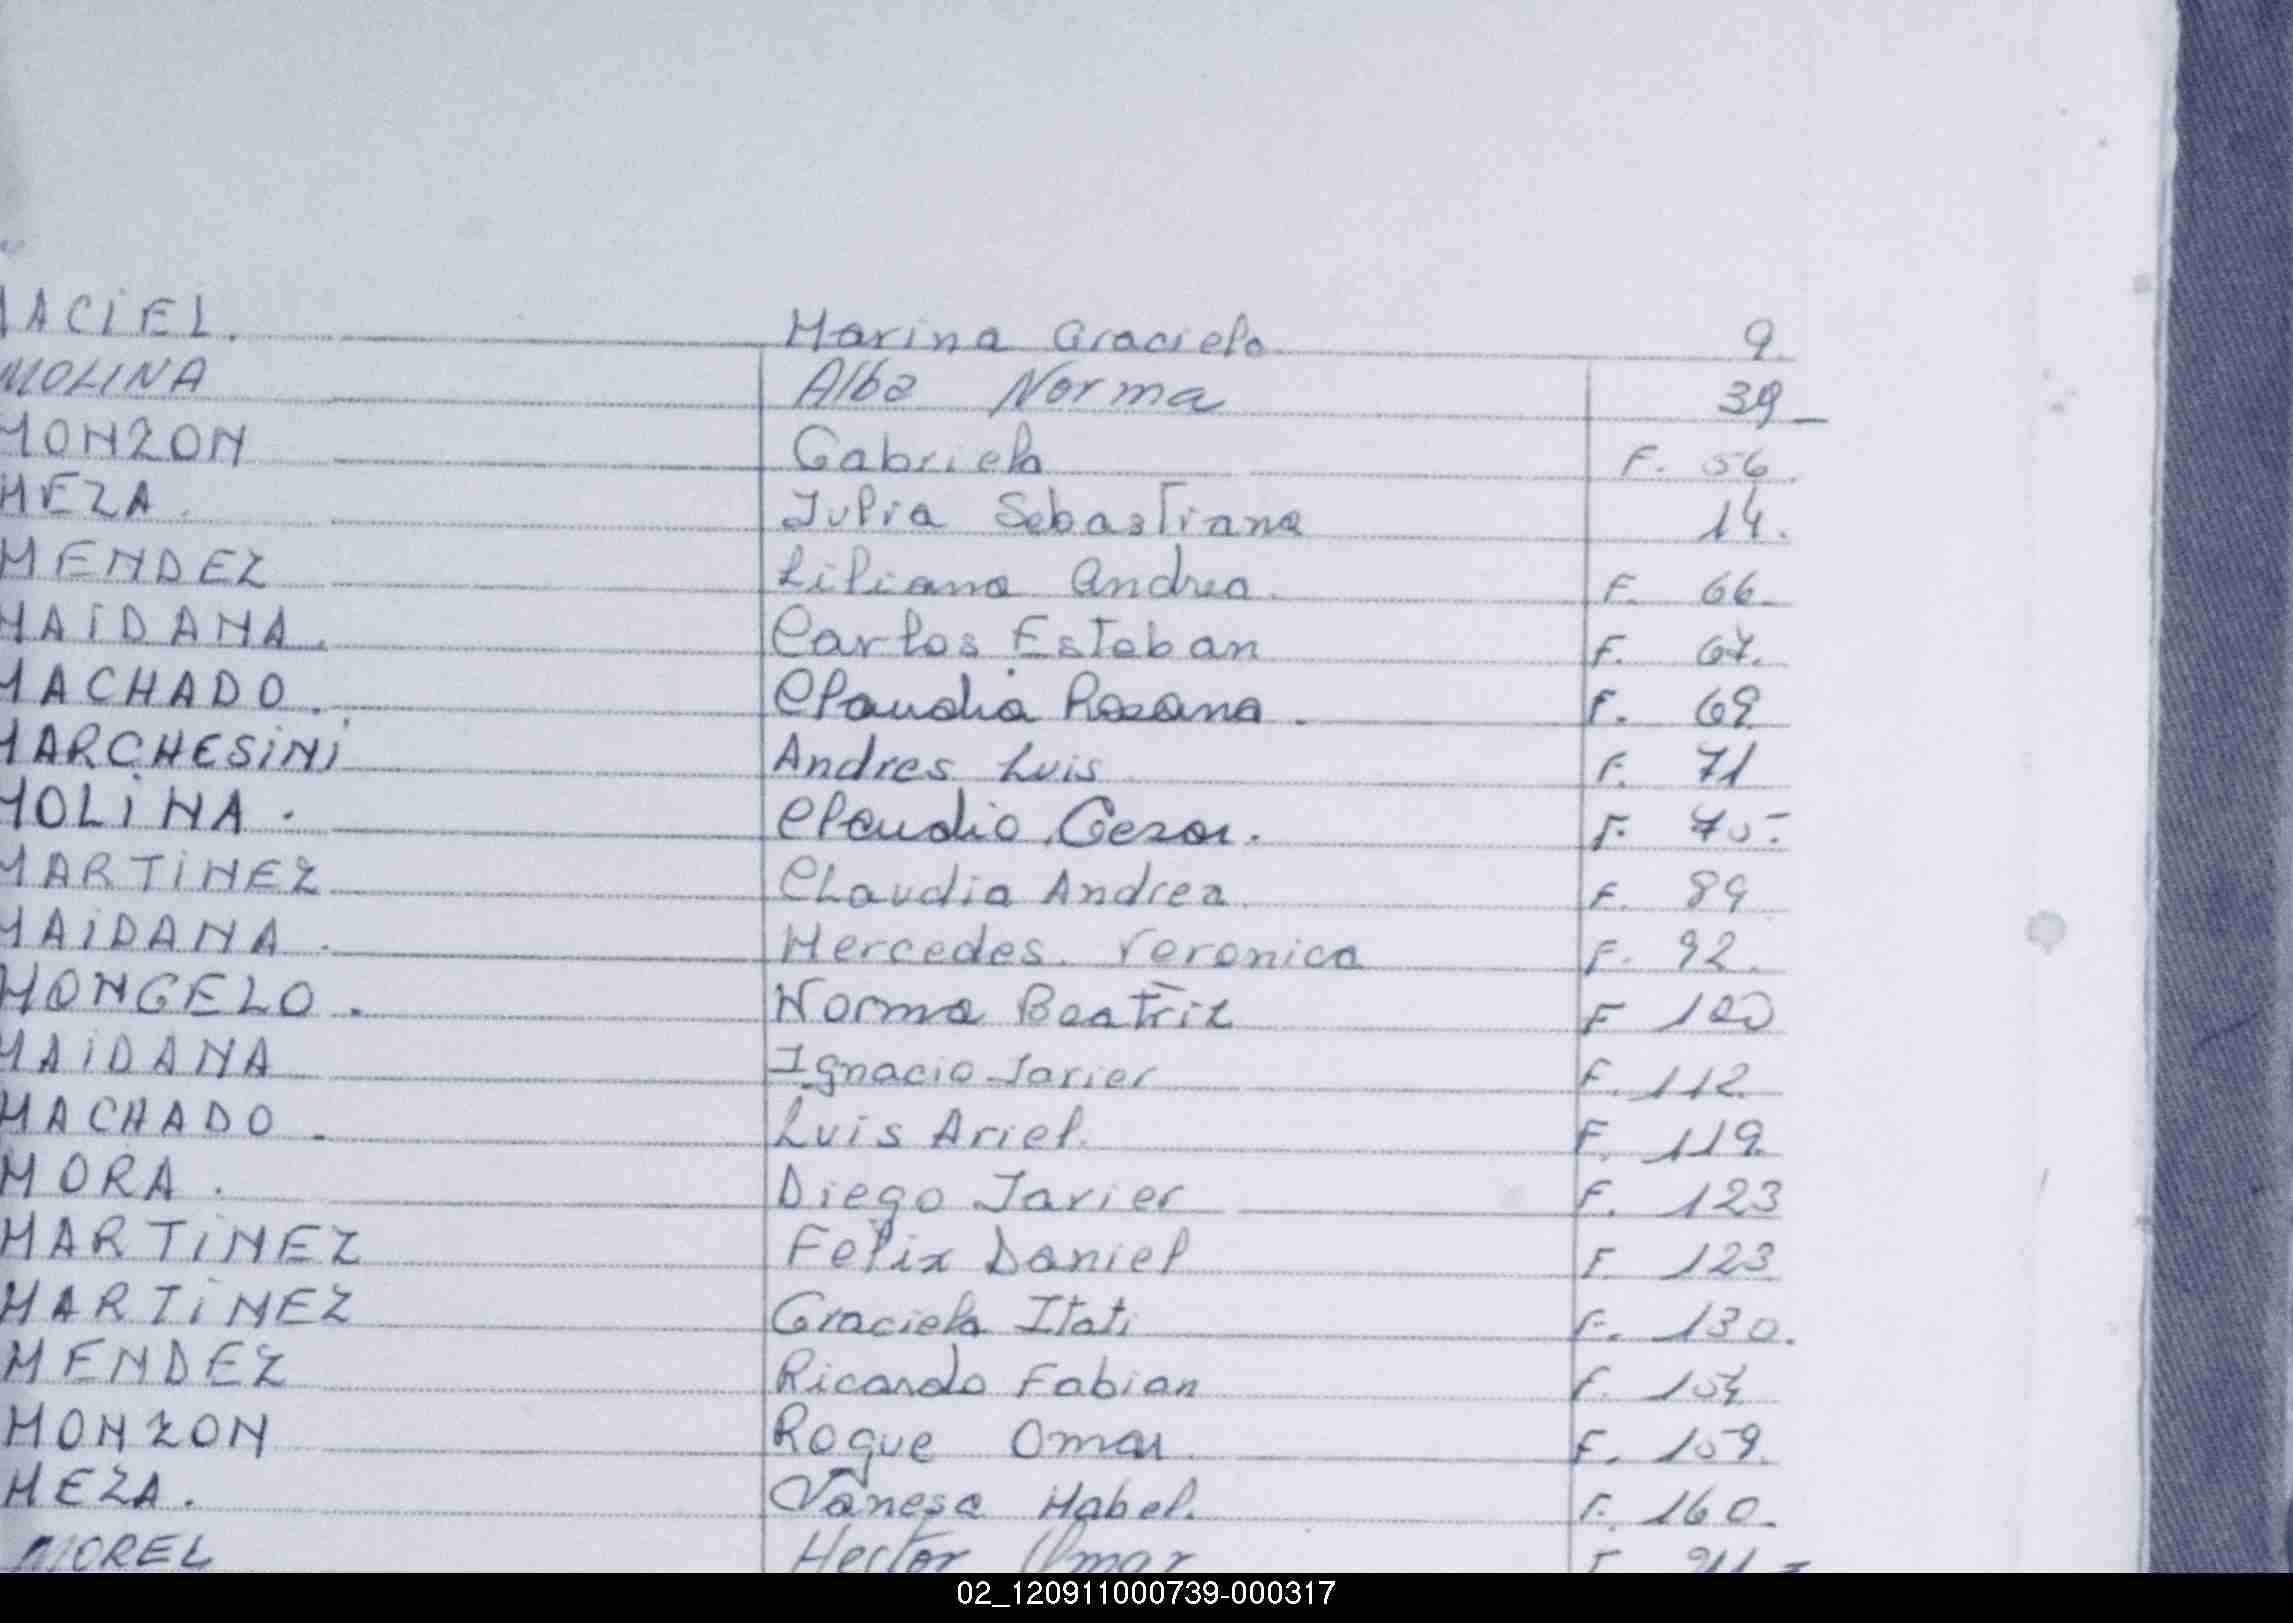 MACIEL. Marina Graciela 9.
MOLINA Alba Norma 39_
MONZON Gabriela F. 56.
MEZA. Julia Sebastiana 14.
MENDEZ Liliana Andrea. F. 66.
MAIDANA. Carlos Esteban F. 67.
MACHADO. Claudia Rosana. F. 69.
MARCHESINI Andres Luis F. 71
MOLINA. Claudio Cesar. F. 75-
MARTINEZ Claudia Andrea. F. 89
MAIDANA. Mercedes. Veronica F. 92.
MONGELO. Norma Beatriz F 100
MAIDANA Ignacio Javier F. 112.
MACHADO. Luis Ariel. F. 119.
MORA. Diego Javier F. 123
MARTINEZ Felix Daniel F. 123
MARTINEZ Graciela Itati F. 130.
MENDEZ Ricardo Fabian F.
MONZON Roque Omar F. 159.
MEZA. Vanesa Mabel. F. 160.
MOREL Hector Omar F.
02_120911000739-000317